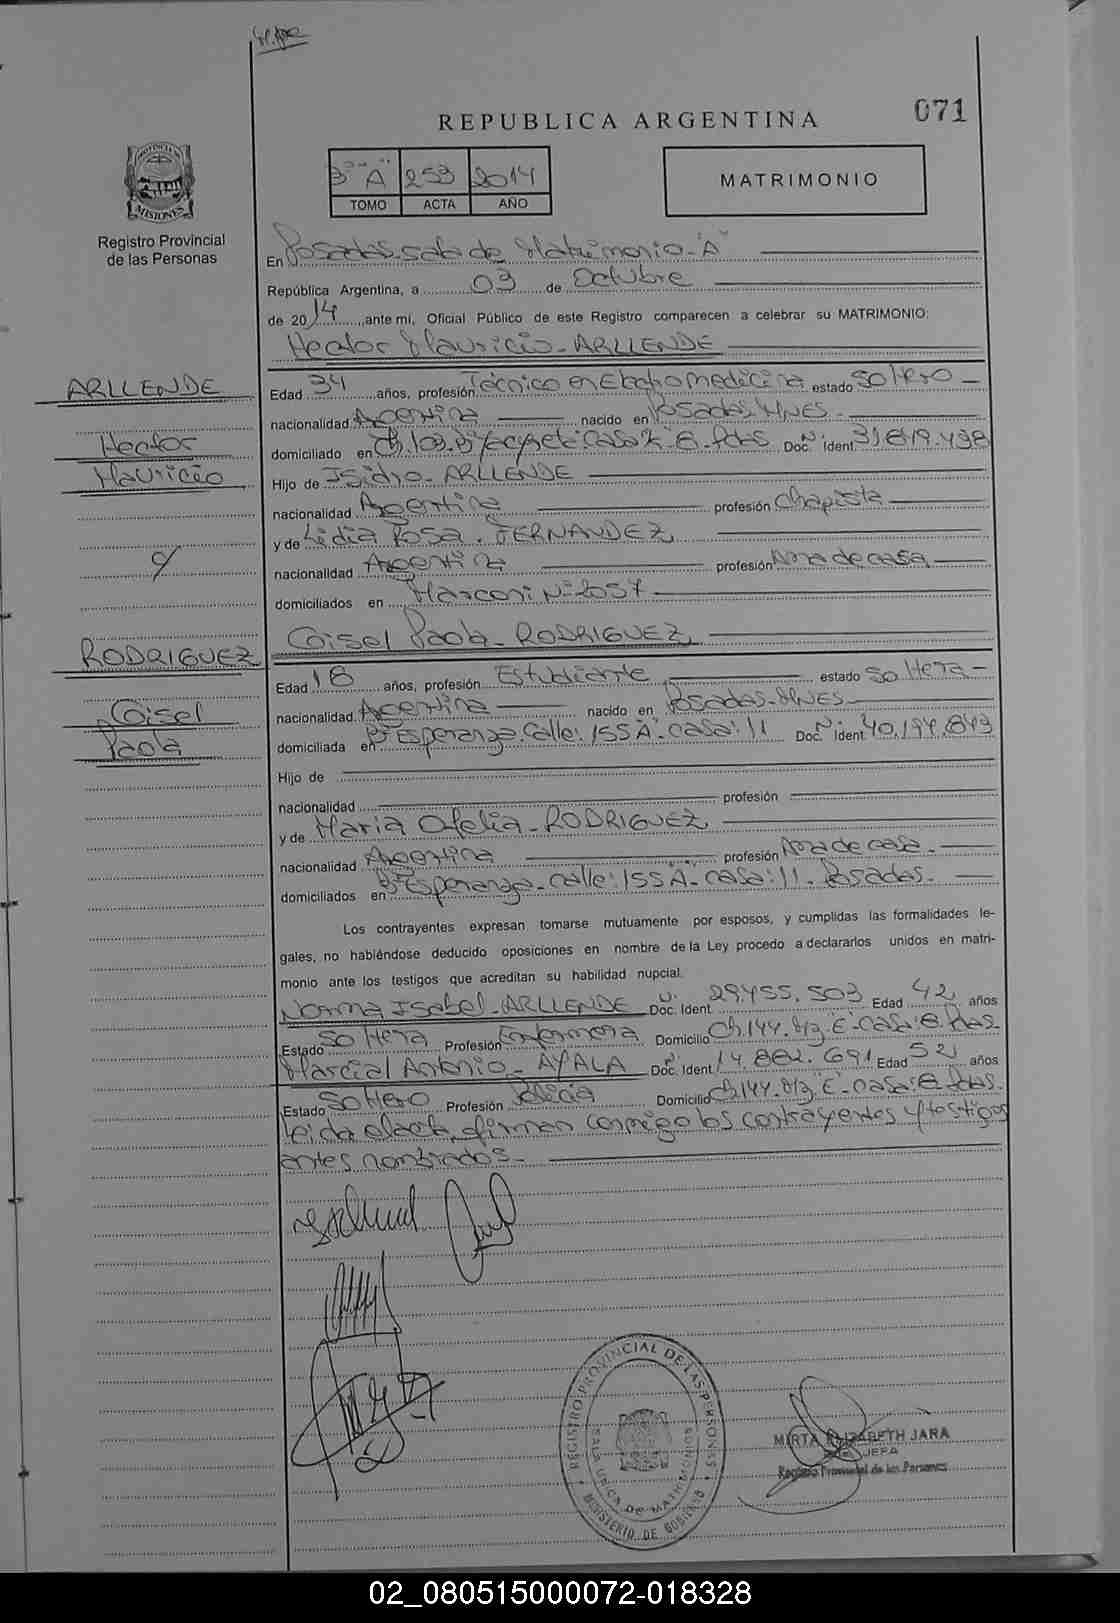 071
REPUBLICA ARGENTINA
3º "A" 253 2014
TOMO ACTA AÑO
MATRIMONIO
PROVINCIA DE MISIONES
Registro Provincial
de las Personas
En Posadas-sala de Matrimonio-"A"
República Argentina, a 03 de Octubre
de 2014, ante mi, Oficial Público de este Registro comparecen a celebrar su MATRIMONIO:
Hector Mauricio-ARLLENDE
ARLLENDE
Hector
Mauricio
c/
RODRIGUEZ
Coisel
Paola
Edad 34 años, profesión Técnico en Electromedicina estado soltero
nacionalidad Argentina nacido en Posadas Mnes.
domiciliado en Ch.103. casa: Pdas Doc. Nº Ident. 31.819.498
Hijo de Isidro-ARLLENDE
nacionalidad Argentina profesión Chapista
y de Lidia Rosa. FERNANDEZ
nacionalidad Argentina profesión Ama de casa
domiciliados en Marconi Nº 2057
Coisel Paola-RODRIGUEZ
Edad 18 años, profesión Estudiante estado soltera
nacionalidad Argentina nacido en Posadas-Mnes
domiciliada en Bº Esperanza. Calle: 155 A-casa: 11 Doc. Nº Ident. 40.194.843
Hijo de
nacionalidad profesión
y de Maria Ofelia-RODRIGUEZ
nacionalidad Argentina profesión Ama de casa
domiciliados en Bº Esperanza-calle: 155 A-casa: 11. Posadas.
Los contrayentes expresan tomarse mutuamente por esposos, y cumplidas las formalidades le-
gales, no habiéndose deducido oposiciones en nombre de la Ley procedo a declararlos unidos en matri-
monio ante los testigos que acreditan su habilidad nupcial.
Norma Isabel-ARLLENDE Doc. Nº Ident. 29.455.503 Edad 42 años
Estado Soltera Profesión Enfermera Domicilio Ch.144. Mz. "E"-casa: 8 Pdas.
Marcial Antonio-AYALA Doc. Nº Ident 14.882.691 Edad 52 años
Estado Soltero Profesión Policia Domicilio Ch 144. Mz. "E"-casa: 8 Pdas.
Leida el acta, firman conmigo los contrayentes y testigos
antes nombrados-
REGISTRO PROVINCIAL DE LAS PERSONAS
SALA UNICA DE MATRIMONIOS
MINISTERIO DE GOBIERNO
MIRTA ELIZABETH JARA
JEFA
Registro Provincial de las Personas
02_080515000072-018328